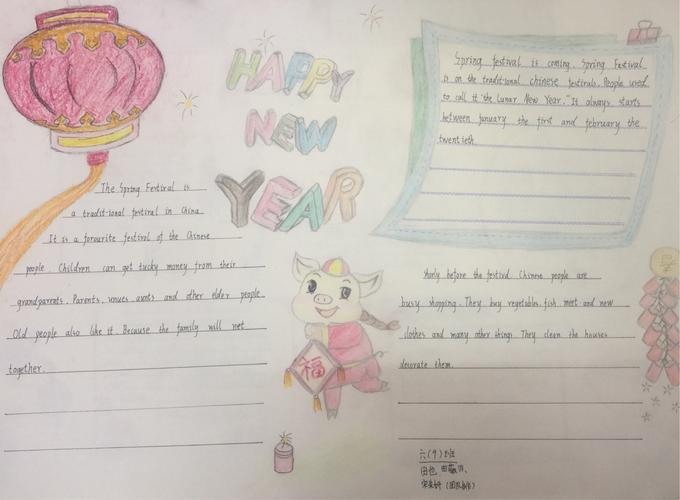 HAPPY
NEW
YEAR
Spring festival is coming. Spring Festival
is on the traditional chinese festivals. People used
to call it "the Lunar New Year." It always starts
between january the first and february the
twentieth.
The Spring Festival is
a traditional festival in China
It is a favourite festival of the Chinese
people. Children can get lucky money from their
grandparents. Parents, unues aunts and other elder people.
Old people also like it. Because the family will net
together.
福
Sharly before the festival. Chinese people are
busy shopping. They buy vegetables, fish, meet and new
clothes and many other things. They clean the houses
decorate them.
六(9)班